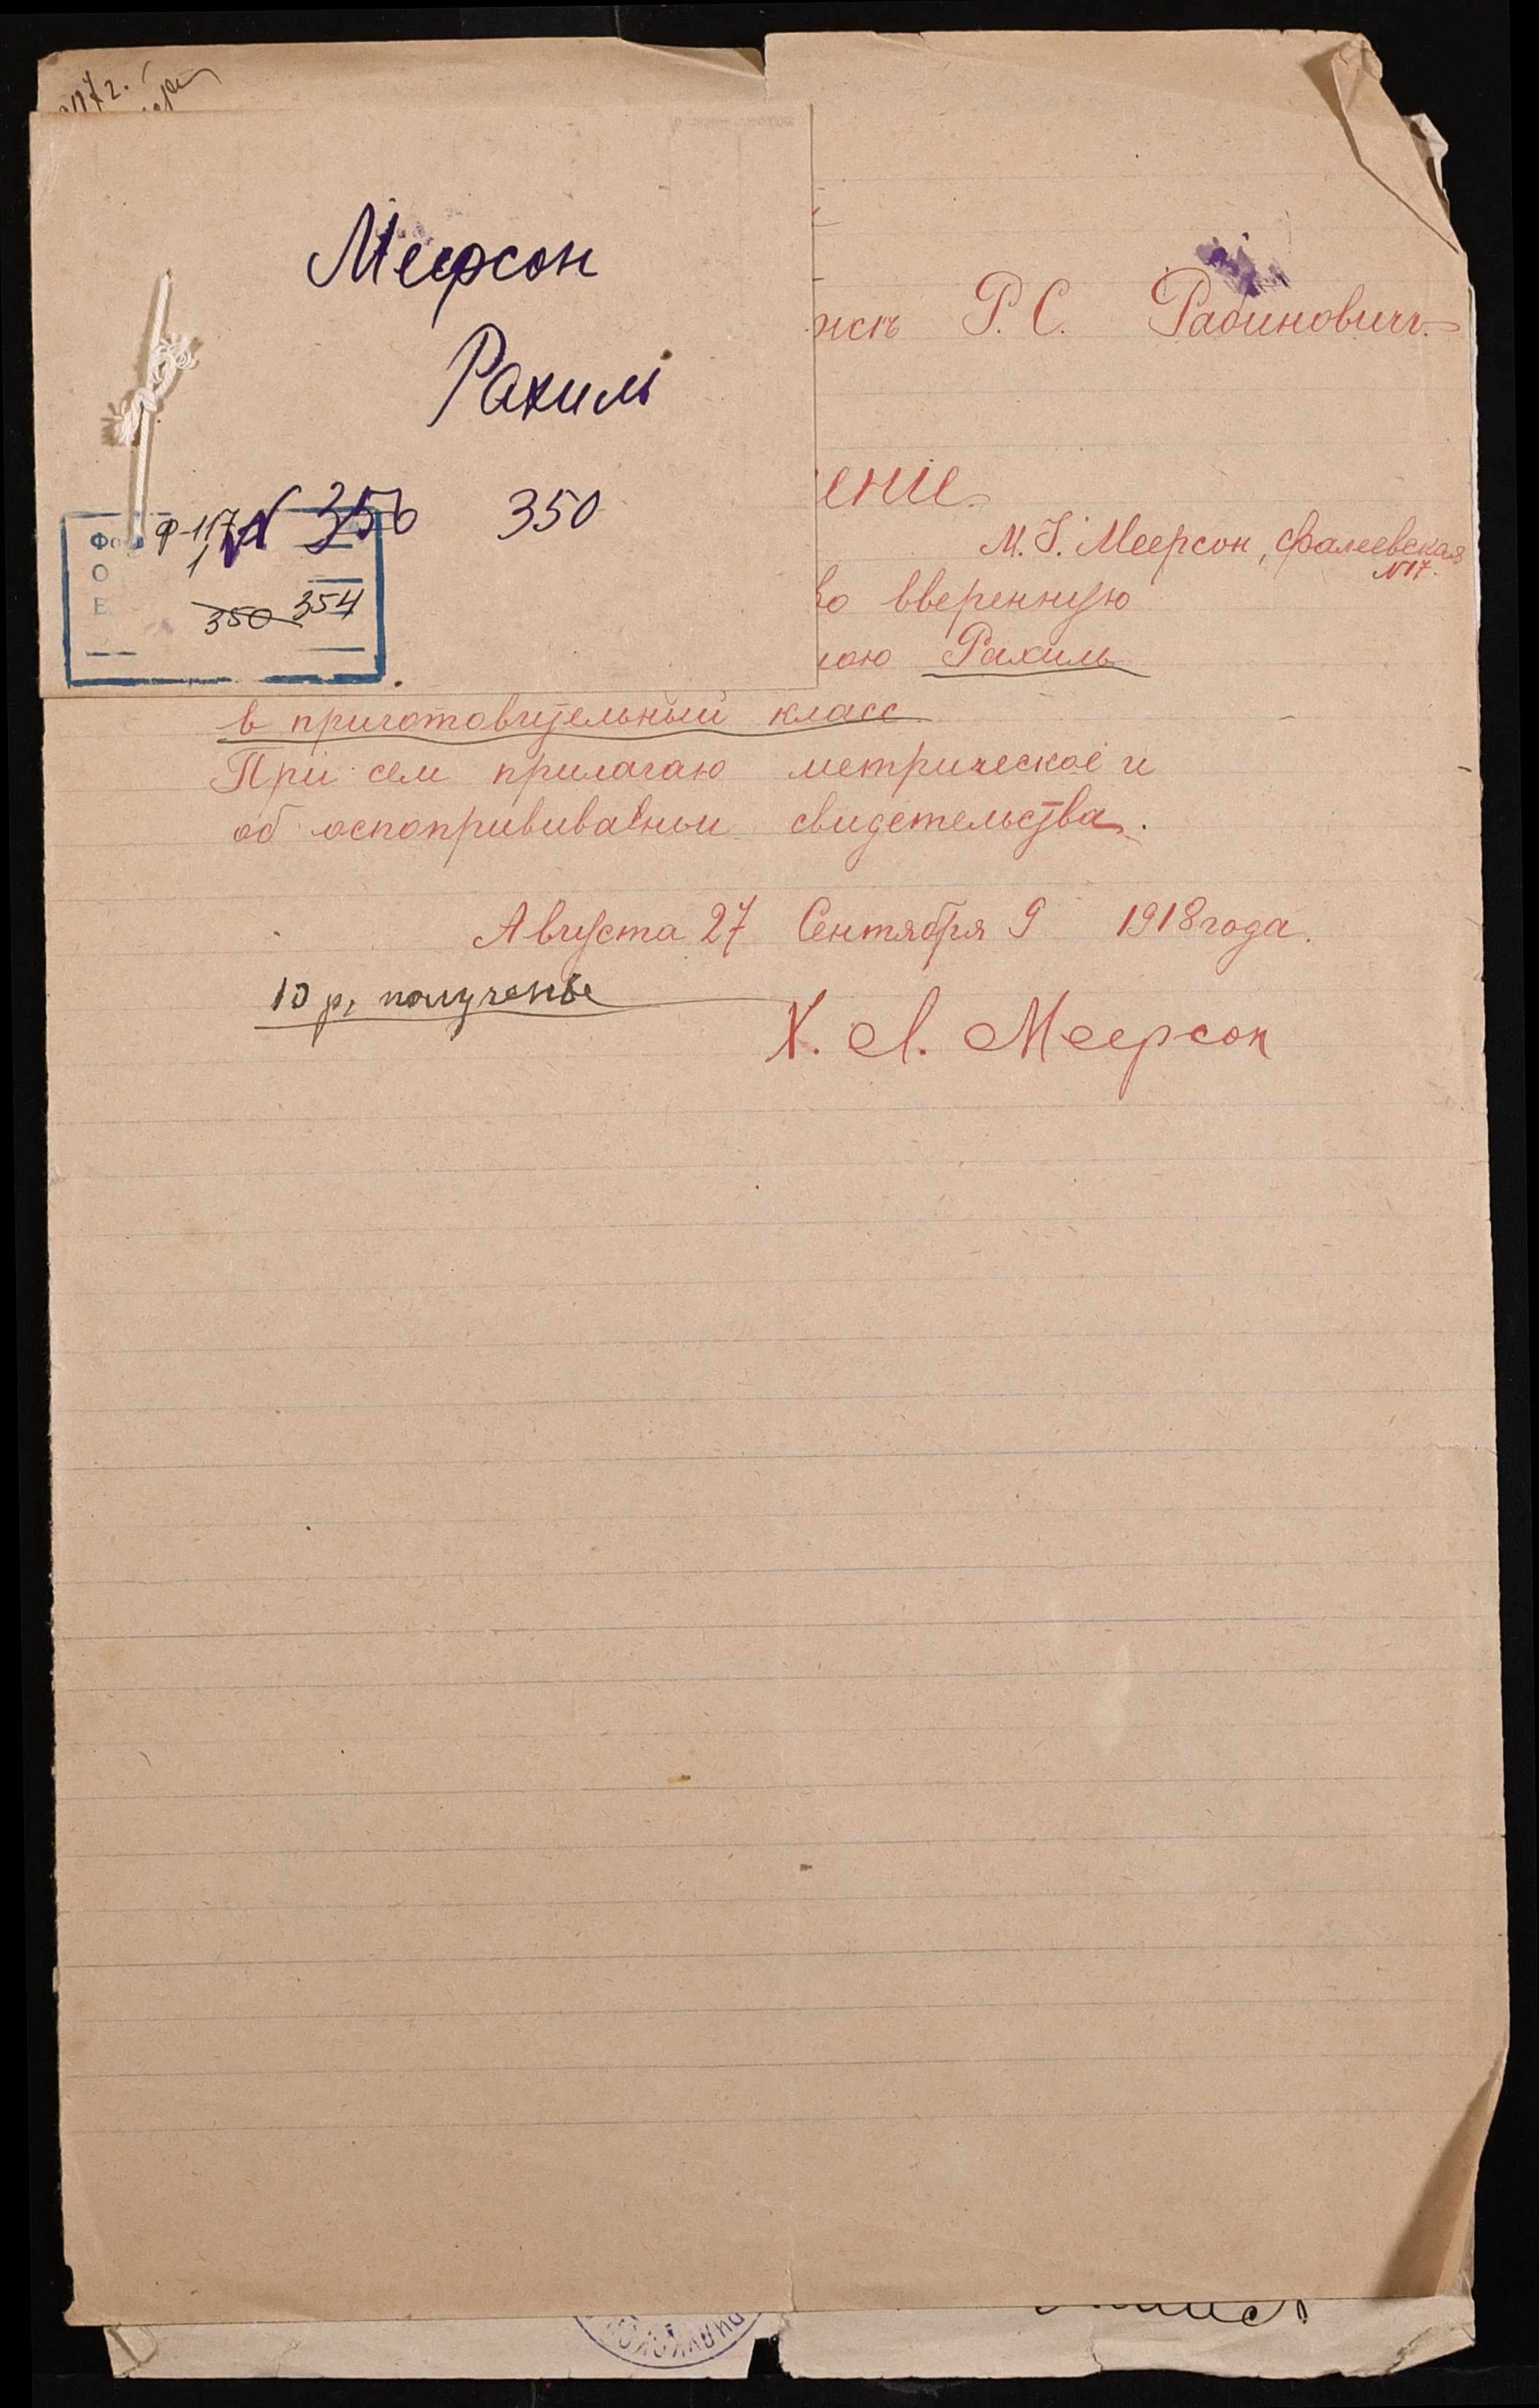 Меерсон
Рахиль
N 350 350
Ф-117
1
350 354
Р. С. Рабинович.
ение
М. I. Меерсон, Фалеевская
N17.
во вверенную
мою Рахиль
в приготовительный класс.
При сем прилагаю метрическое и
об оспопрививании свидетельства.
Августа 27 Сентября 9 1918 года.
10 р. получены
Х. Л. Меерсон